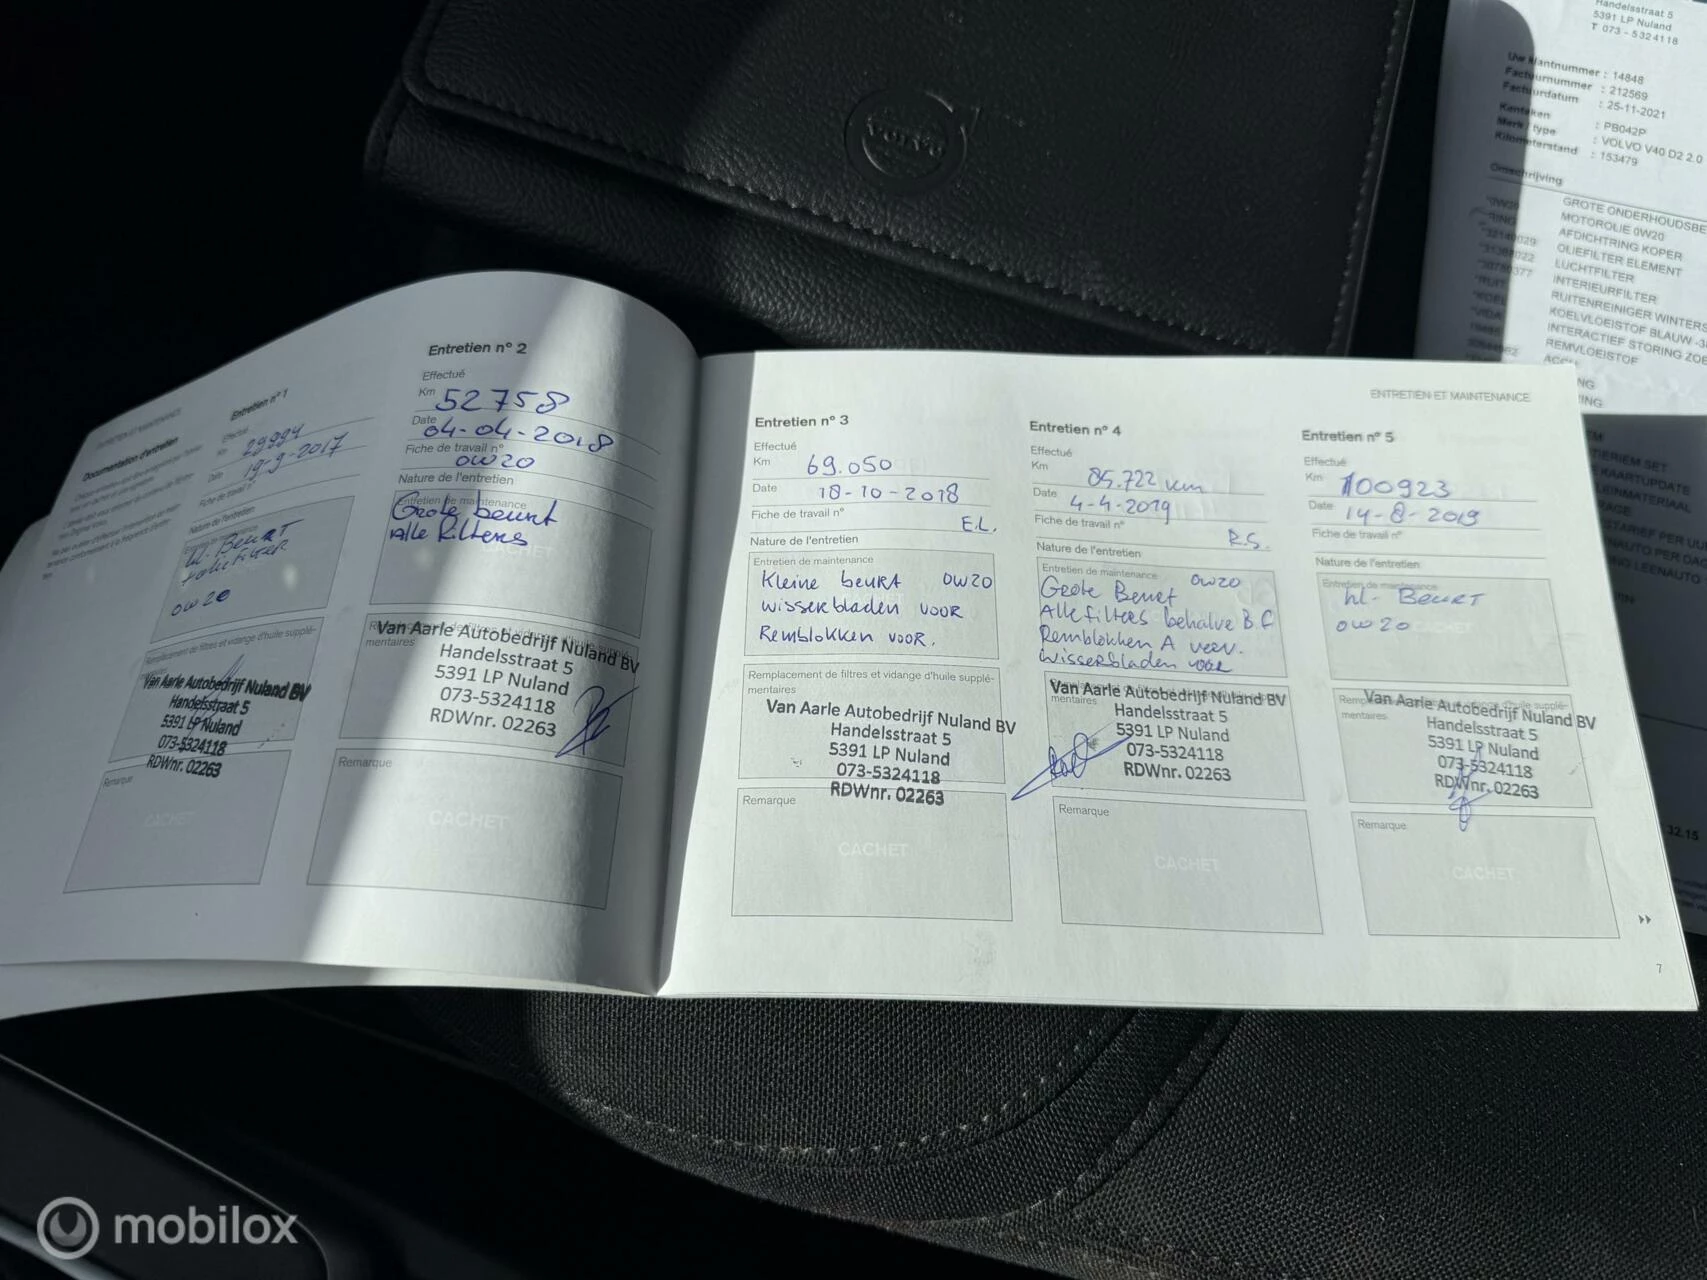 Handelsstraat 5
5391 LP Nuland
T 073 - 5324118
Uw klantnummer : 14848
Factuurnummer : 212569
Factuurdatum : 25-11-2021
Kenteken : PB042P
Merk / type : VOLVO V40 D2 2.0
Kilometerstand : 153479
Omschrijving
GROTE ONDERHOUDSBE
MOTOROLIE 0W20
AFDICHTRING KOPER
OLIEFILTER ELEMENT
LUCHTFILTER
INTERIEURFILTER
RUITENREINIGER WINTERS
KOELVLOEISTOF BLAUW -3
INTERACTIEF STORING ZOE
REMVLOEISTOF
VOLVO
ENTRETIEN ET MAINTENANCE
Documentation d'entretien
Entretien n° 1
Effectué
Km 29994
Date 19-9-2017
Fiche de travail n°
Nature de l'entretien
kl- BEURT
+ olie FILTER
0W20
Van Aarle Autobedrijf Nuland BV
Handelsstraat 5
5391 LP Nuland
073-5324118
RDWnr. 02263
Remarque
CACHET
Entretien n° 2
Effectué
Km 52758
Date 04-04-2018
Fiche de travail n°
0W20
Nature de l'entretien
Entretien de maintenance
Grote beurt
Alle filters
CACHET
Van Aarle Autobedrijf Nuland BV
mentaires
Handelsstraat 5
5391 LP Nuland
073-5324118
RDWnr. 02263
Remarque
CACHET
ENTRETIEN ET MAINTENANCE
Entretien n° 3
Effectué
Km 69.050
Date 18-10-2018
Fiche de travail n° E.L.
Nature de l'entretien
Entretien de maintenance
Kleine beurt 0W20
wisserbladen voor
Remblokken voor.
Remplacement de filtres et vidange d'huile supplé-
mentaires
Van Aarle Autobedrijf Nuland BV
Handelsstraat 5
5391 LP Nuland
073-5324118
RDWnr. 02263
Remarque
CACHET
Entretien n° 4
Effectué
Km 85.722 km
Date 4-4-2019
Fiche de travail n° R.S.
Nature de l'entretien
Entretien de maintenance 0W20
Grote Beurt
Alle filters behalve B.F
Remblokken A verv.
wisserbladen voor
Van Aarle Autobedrijf Nuland BV
mentaires
Handelsstraat 5
5391 LP Nuland
073-5324118
RDWnr. 02263
Remarque
CACHET
Entretien n° 5
Effectué
Km 100923
Date 14-8-2019
Fiche de travail n°
Nature de l'entretien
Entretien de maintenance
kl- BEURT
0W20
Van Aarle Autobedrijf Nuland BV
mentaires
Handelsstraat 5
5391 LP Nuland
073-5324118
RDWnr. 02263
Remarque
CACHET
7
TIERIEM SET
KAARTUPDATE
LEINMATERIAAL
32.15
mobilox